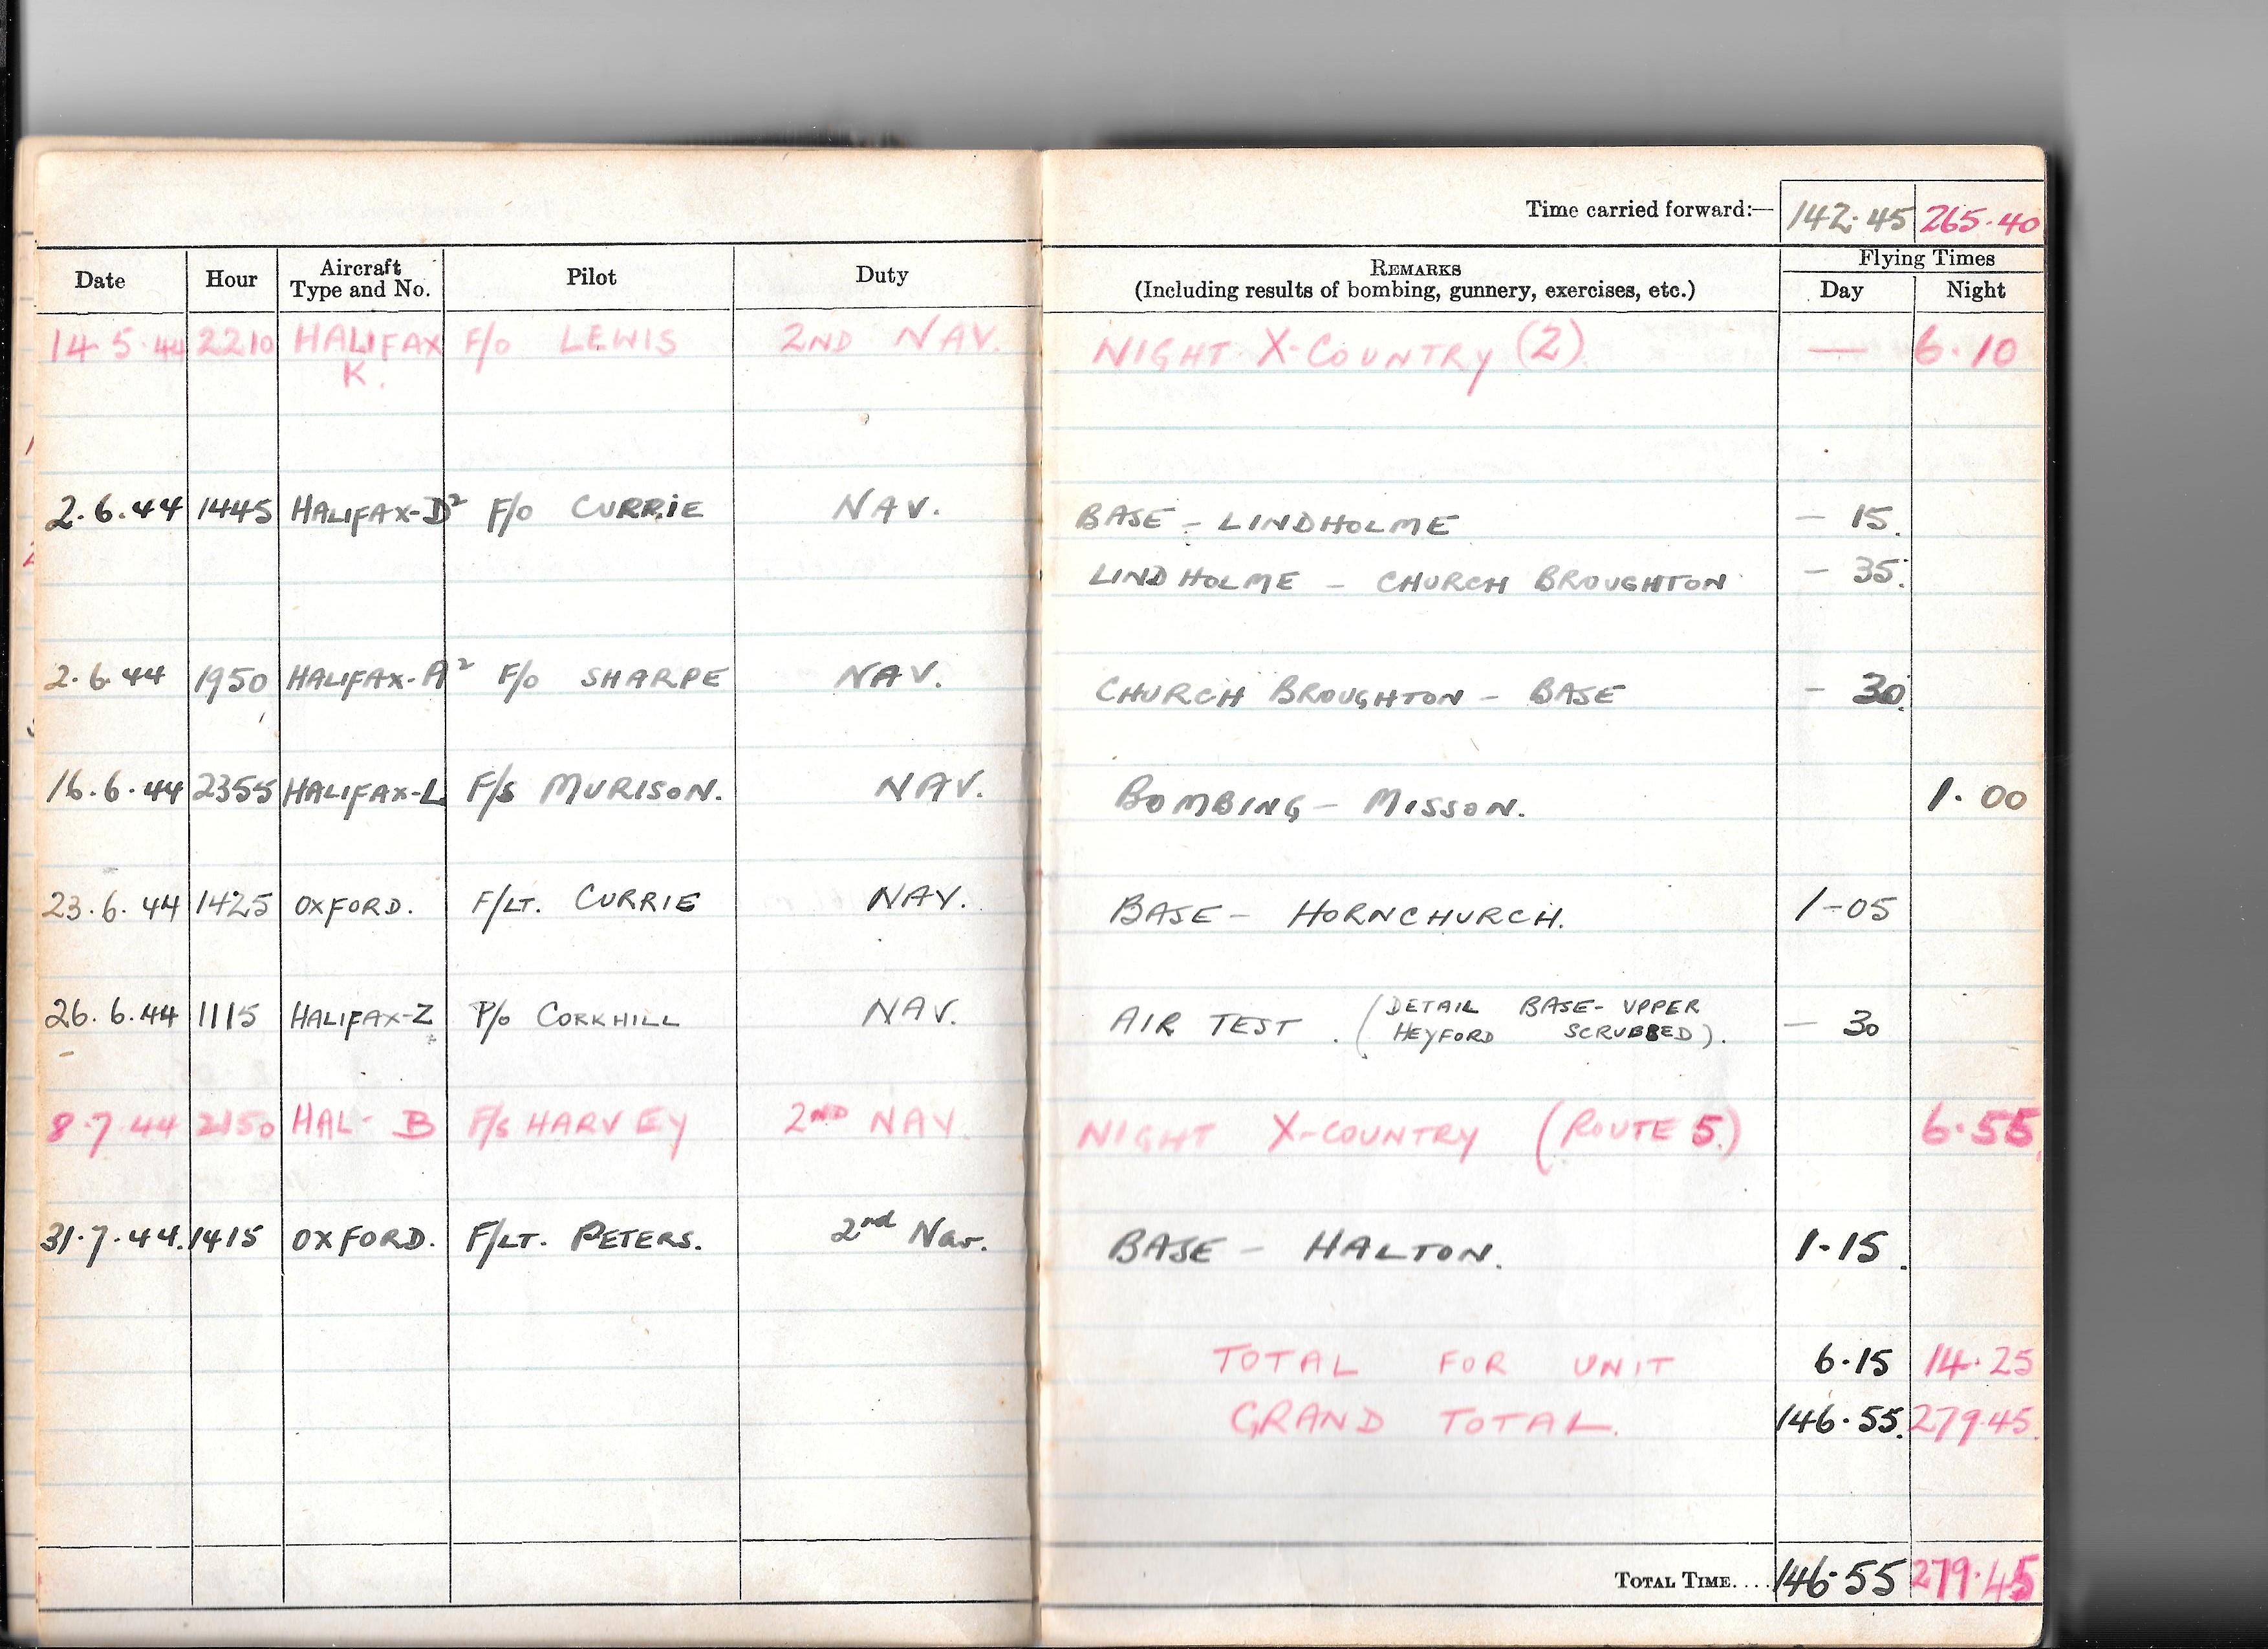 Time carried forward:— 142.45 265.40
Date Hour Aircraft Type and No. Pilot Duty REMARKS (Including results of bombing, gunnery, exercises, etc.) Flying Times Day Night
14.5.44 2210 HALIFAX K. F/O LEWIS 2ND NAV. NIGHT X-COUNTRY (2) — 6.10
2.6.44 1445 HALIFAX-D² F/O CURRIE NAV. BASE - LINDHOLME - 15.
LINDHOLME - CHURCH BROUGHTON - 35.
2.6.44 1950 HALIFAX-A² F/O SHARPE NAV. CHURCH BROUGHTON - BASE - 30.
16.6.44 2355 HALIFAX-L F/S MURISON. NAV. BOMBING - MISSON. 1.00
23.6.44 1425 OXFORD. F/LT. CURRIE NAV. BASE - HORNCHURCH. 1-05
26.6.44 1115 HALIFAX-Z P/O CORKHILL NAV. AIR TEST. (DETAIL BASE-UPPER HEYFORD SCRUBBED). - 30
8.7.44 2150 HAL- B F/S HARVEY 2ND NAV NIGHT X-COUNTRY (ROUTE 5.) 6.55.
31.7.44. 1415 OXFORD. F/LT. PETERS. 2nd Nav. BASE - HALTON. 1-15.
TOTAL FOR UNIT 6.15 14.25
GRAND TOTAL. 146.55. 279.45.
TOTAL TIME.... 146.55 279.45